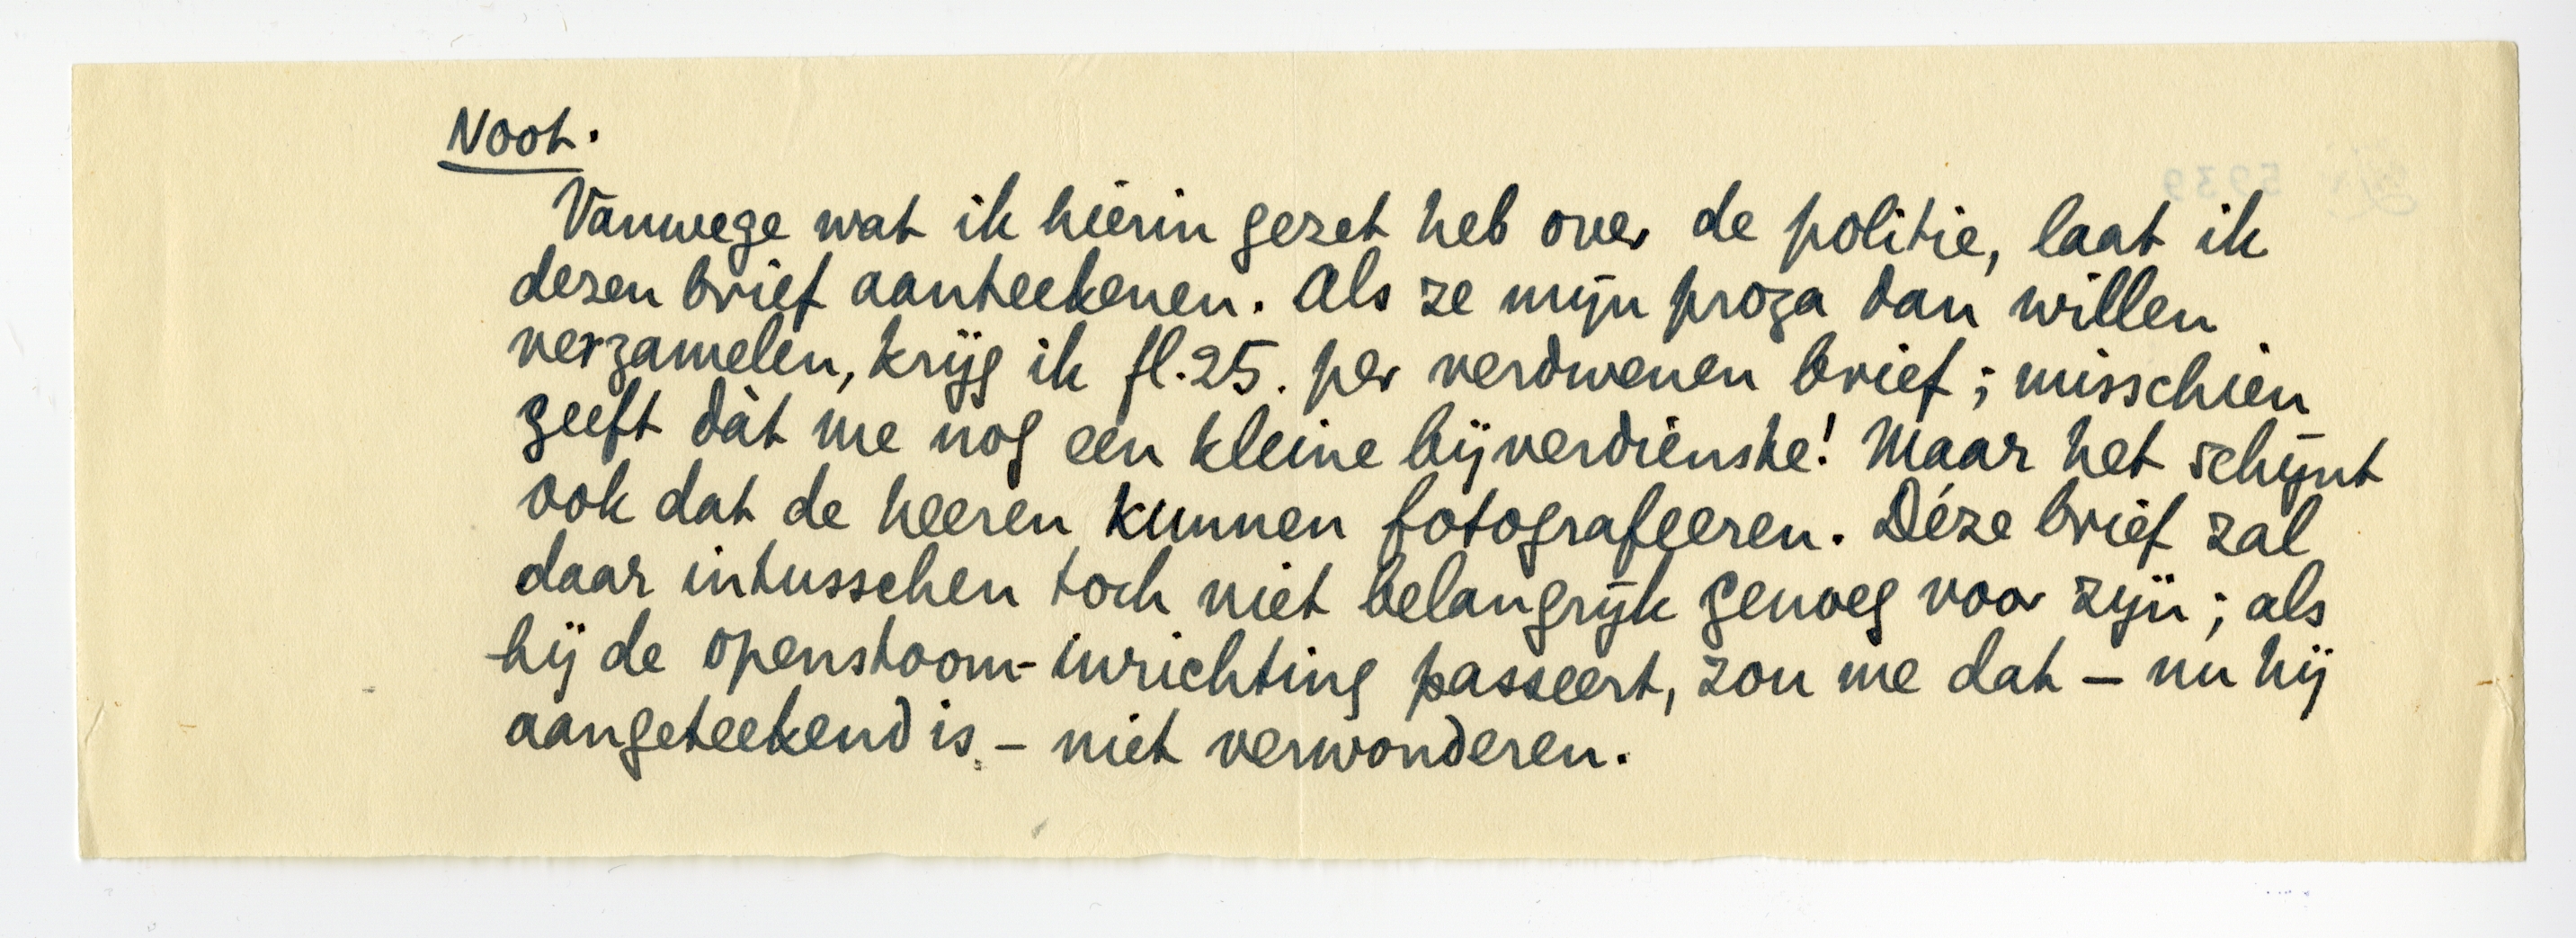 Noot.
Vanwege wat ik hierin gezet heb over de politie, laat ik
dezen brief aanteekenen. Als ze mijn proza dan willen
verzamelen, krijg ik fl. 25. per verdwenen brief; misschien
geeft dàt me nog een kleine bijverdienste! Maar het schijnt
ook dat de heeren kunnen fotografeeren. Déze brief zal
daar intusschen toch niet belangrijk genoeg voor zijn; als
hij de openstoom-inrichting passeert, zou me dat – nu hij
aangeteekend is – niet verwonderen.